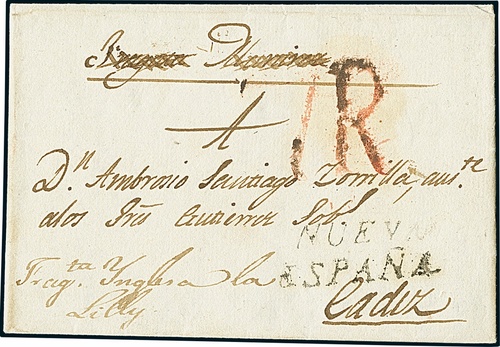 Fragata
A
1R
Dn. Ambrosio Santiago Zorrilla, aus.te
a los Srs Gutierrez Sobs
NUEVA
ESPAÑA
Frag.ta Inglesa la
Lilly
Cadiz